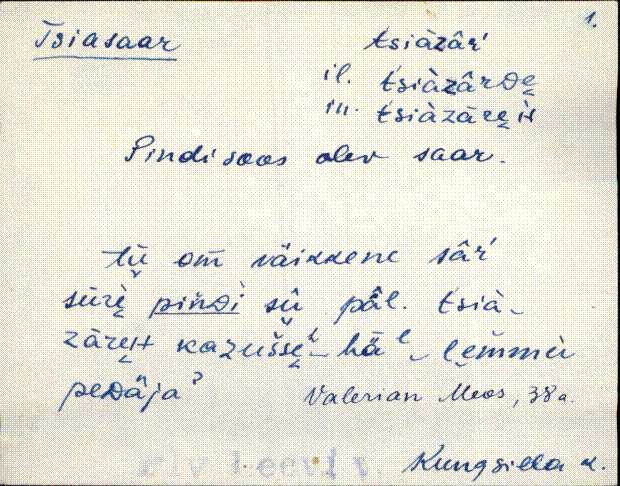 1.
Tsiasaar tsiàzâŕ
il. tsiàzârDe̬
in. tsiàzāre̬н
Pindisoos olev saar.
tū̬ om̄ väikkene sâŕ
sūrè̬ piǹDi sû pǟl. tsià-
zāre̬н kazušše̬ hä lemmɪ̀
peDäja?
Valerian Meos, 38 a.
Kungsilla k.